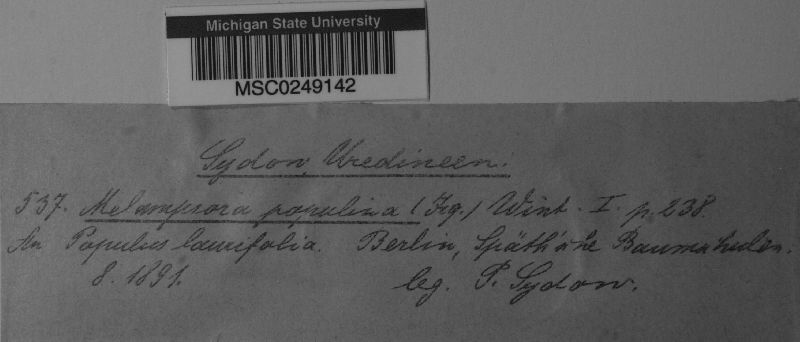 Michigan State University
MSC0249142
Sydow, Uredineen.
537. Melampsora populina (Jcq.) Wint. I. p. 238.
An Populus laurifolia. Berlin, Späth'sche Baumschulen.
8. 1891. leg. P. Sydow.